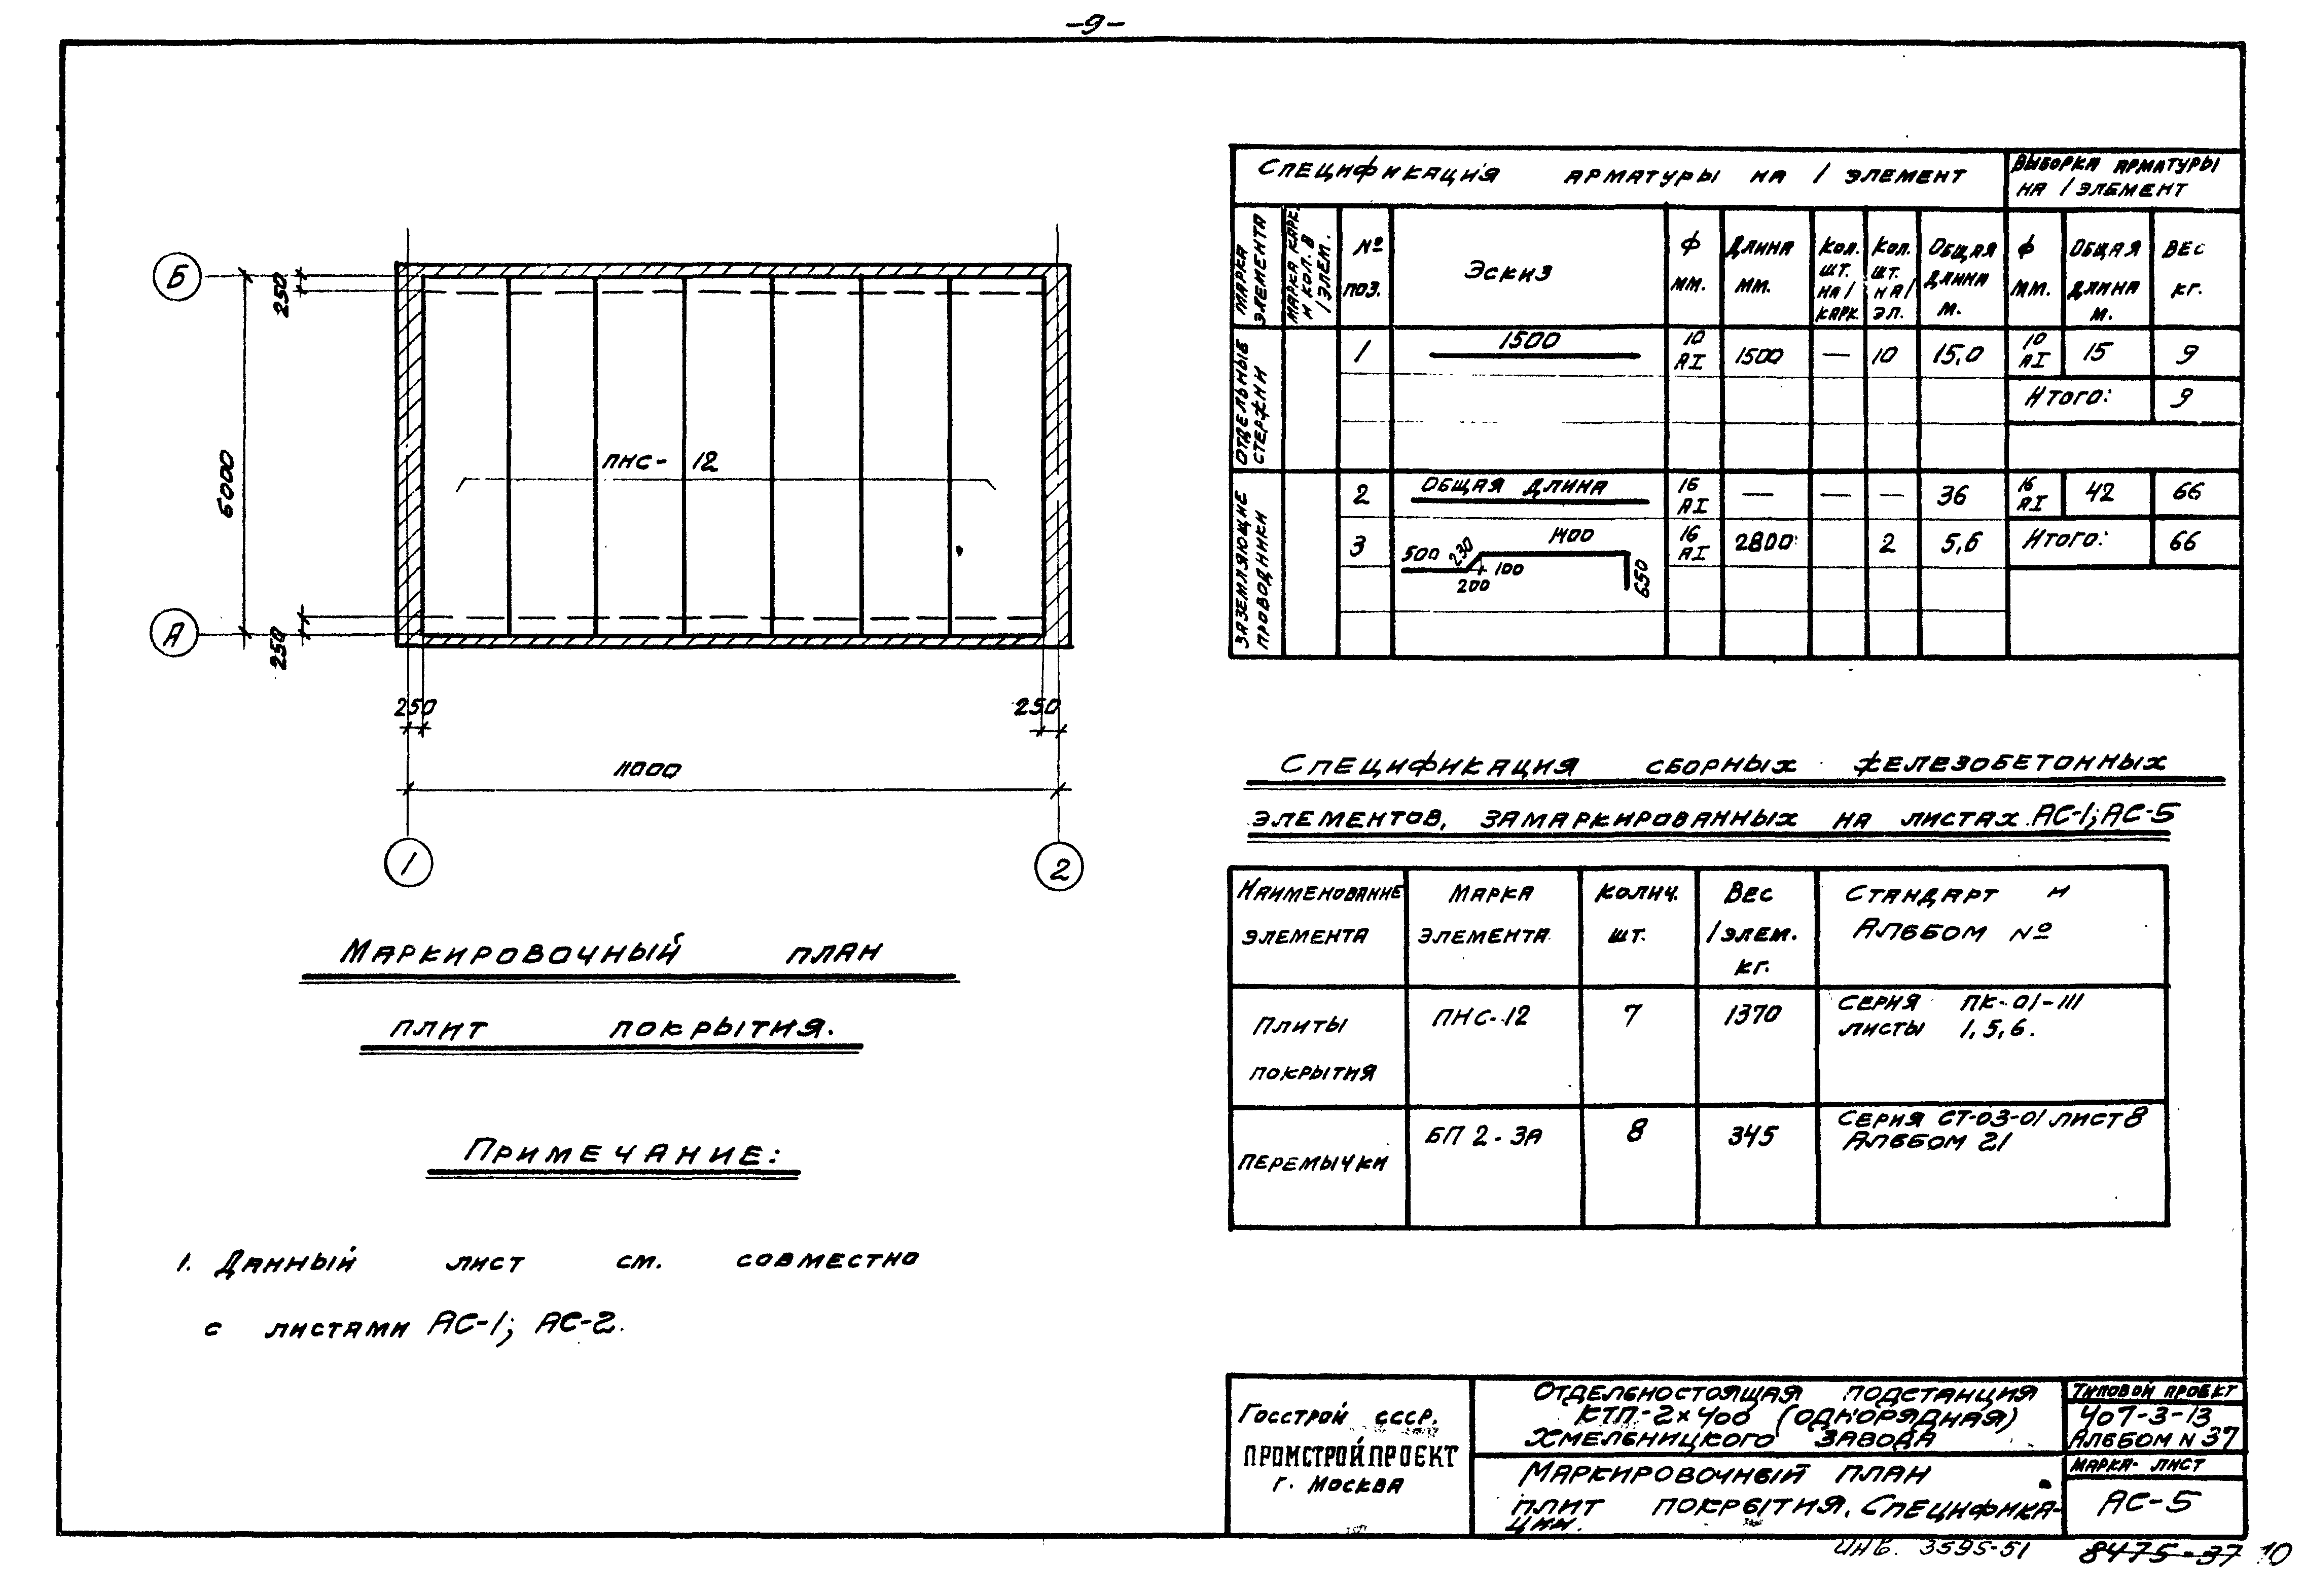 -9-
Б
А
250
6000
250
ПНС-12
250
250
11000
1
2
Маркировочный план
плит покрытия.
Примечание:
1. Данный лист см. совместно
с листами АС-1; АС-2.
Спецификация арматуры на 1 элемент
Выборка арматуры
на 1 элемент
Марка элемента
Марка карк. и кол. в 1 элем.
№ поз.
Эскиз
Ф мм.
Длина мм.
Кол. шт. на 1 карк.
Кол. шт. на 1 эл.
Общая длина м.
Ф мм.
Общая длина м.
Вес кг.
Отдельные стержни
1 1500 10 АI 1500 — 10 15,0 10 АI 15 9
Итого: 9
Заземляющие проводники
2 Общая длина 16 АI — — — 36 16 АI 42 66
3 500 230 1400 200 100 650 16 АI 2800 2 5,6 Итого: 66
Спецификация сборных железобетонных
элементов, замаркированных на листах АС-1; АС-5
Наименование элемента
Марка элемента
Колич. шт.
Вес 1 элем. кг.
Стандарт и Альбом №
Плиты покрытия ПНС-12 7 1370 Серия ПК-01-111
листы 1, 5, 6.
Перемычки БП 2-3А 8 345 Серия СТ-03-01 лист 8
Альбом 21
Госстрой СССР.
ПРОМСТРОЙПРОЕКТ
г. Москва
Отдельностоящая подстанция
КТП-2×400 (однорядная)
Хмельницкого завода
Маркировочный план
плит покрытия. Специфика-
ции.
Типовой проект
407-3-13
Альбом N 37
Марка-лист
АС-5
Инв. 3595-51
8475-37 10